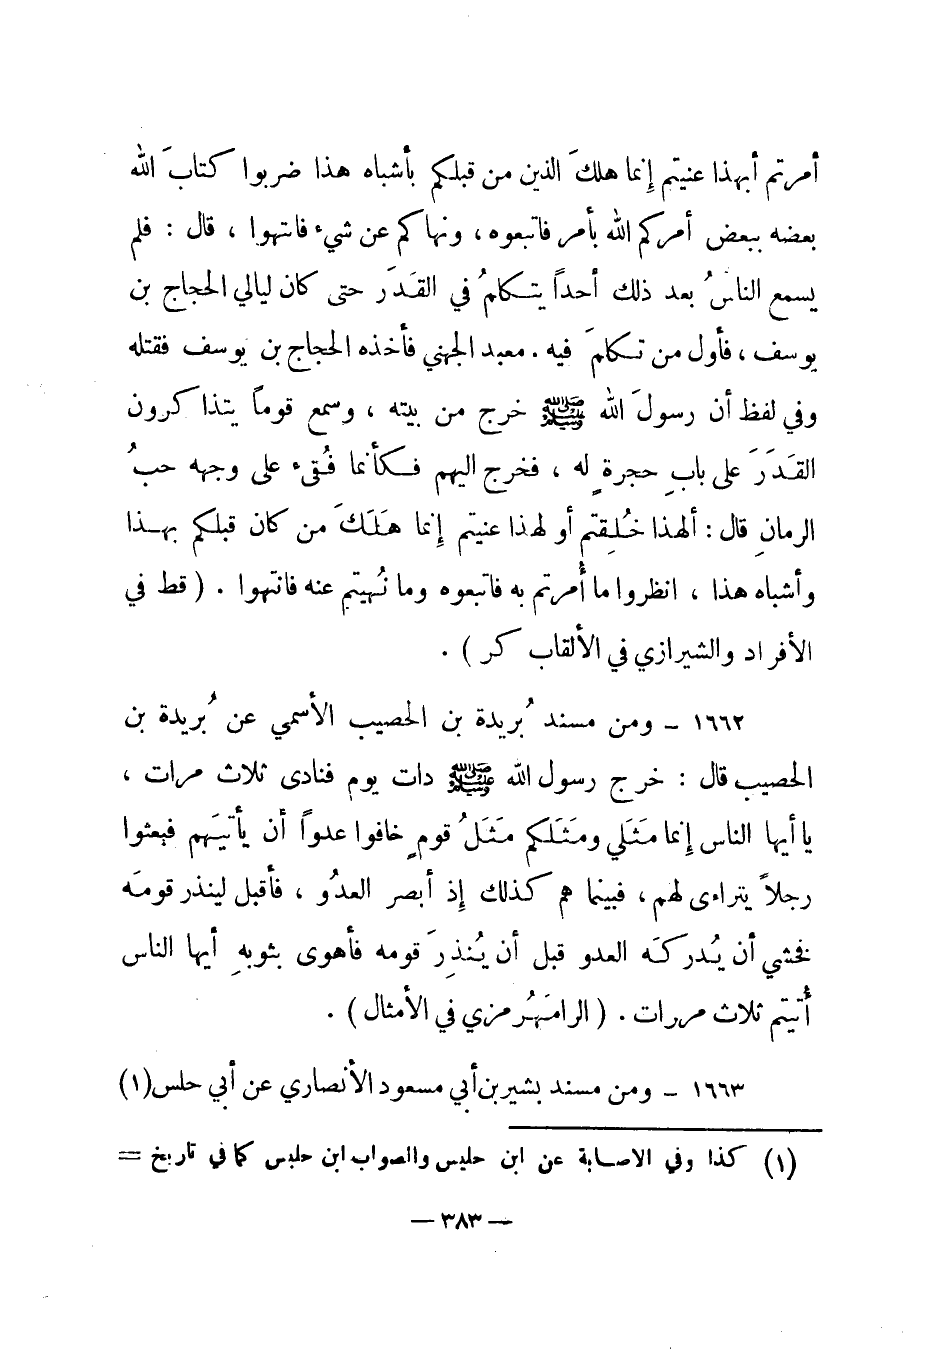 أمرتم أبهذا عنيتم إنما هلكَ الذين من قبلكم بأشباه هذا ضربوا كتابَ الله
بعضه ببعض أمركم الله بأمر فاتبعوه، ونهاكم عن شيء فانتهوا ، قال : فلم
يسمع الناسُ بعد ذلك أحداً يتكلمُ في القَدَر حتى كان ليالي الحجاج بن
يوسف ، فأول من تكلمَ فيه . معبد الجهني فأخذه الحجاج بن يوسف فقتله
وفي لفظ أن رسولَ الله ﷺ خرج من بيته ، وسمع قوماً يتذاكرون
القَدَرَ على بابِ حجرةٍ له ، فخرج اليهم فكأنما فُقىء على وجهه حبُ
الرمانِ قال : ألهذا خُلِقتم أو لهذا عنيتم إنما هَلَكَ من كان قبلكم بهذا
وأشباه هذا ، انظروا ما أُمرتم به فاتبعوه وما نُهيتم عنه فانتهوا . ( قط في
الأفراد والشيرازي في الألقاب كر ) .
١٦٦٢ ـ ومن مسند بُريدة بن الحصيب الأسمي عن بُريدة بن
الحصيب قال : خرج رسول الله ﷺ دات يوم فنادى ثلاث مرات ،
يا أيها الناس إنما مَثَلي ومَثَلَكم مَثَلُ قومٍ خافوا عدواً أن يأتيَهم فبعثوا
رجلاً يتراءى لهم ، فبينما هم كذلك إذ أبصر العدُو ، فأقبل لينذر قومَه
فخشي أن يُدركَه العدو قبل أن يُنذِرَ قومه فأهوى بثوبهِ أيها الناس
أُتيتم ثلاث مررات . ( الرامَهُرمزي في الأمثال ) .
١٦٦٣ ـ ومن مسند بشير بن أبي مسعود الأنصاري عن أبي حلس(١)
(١) كذا وفي الاصابة عن ابن حليس والصواب ابن حلبس كما في تاريخ =
— ٣٨٣ —